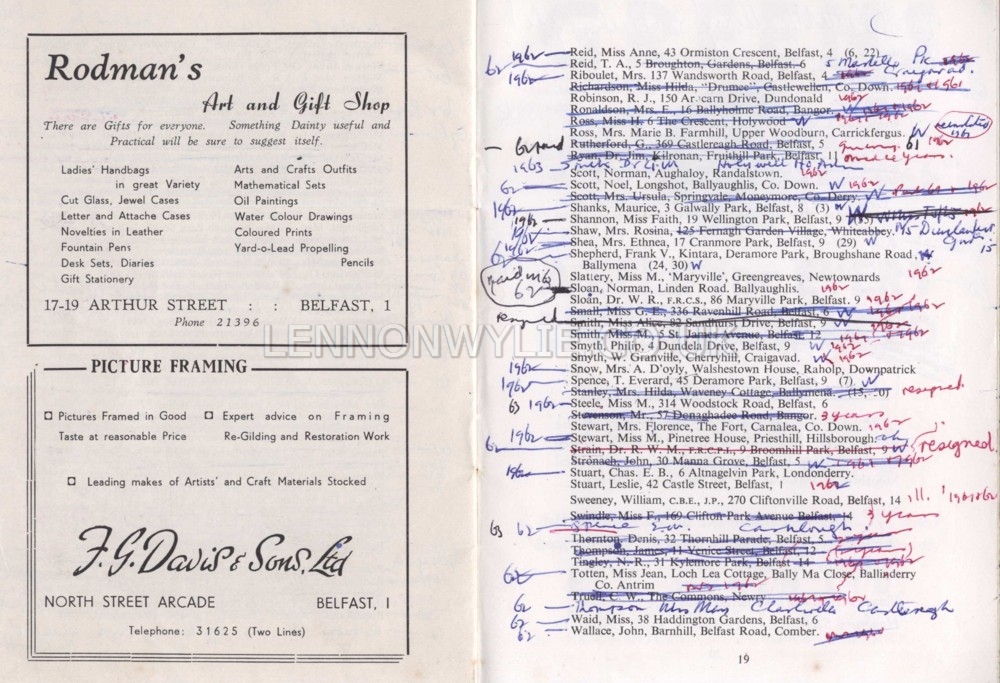 Rodman's
Art and Gift Shop
There are Gifts for everyone. Something Dainty useful and
Practical will be sure to suggest itself.
Ladies' Handbags
in great Variety
Cut Glass, Jewel Cases
Letter and Attache Cases
Novelties in Leather
Fountain Pens
Desk Sets, Diaries
Gift Stationery
Arts and Crafts Outfits
Mathematical Sets
Oil Paintings
Water Colour Drawings
Coloured Prints
Yard-o-Lead Propelling
Pencils
17-19 ARTHUR STREET : : BELFAST, 1
Phone 21396
PICTURE FRAMING
Pictures Framed in Good
Taste at reasonable Price
Expert advice on Framing
Re-Gilding and Restoration Work
Leading makes of Artists' and Craft Materials Stocked
F. G. Davis & Sons, Ltd
NORTH STREET ARCADE BELFAST, 1
Telephone: 31625 (Two Lines)
LENNONWYLIE
1962 Reid, Miss Anne, 43 Ormiston Crescent, Belfast, 4 (6, 22)
62 Reid, T. A., 5 Broughton, Gardens, Belfast, 6
1962 Riboulet, Mrs. 137 Wandsworth Road, Belfast, 4 Craigavad.
Richardson, Miss Hilda, "Drumee", Castlewellen, Co. Down. 1961
Robinson, R. J., 150 Ardcarn Drive, Dundonald 1962
Ronaldson, Mrs. E., 16 Ballyholme Road, Bangor. W
Ross, Miss H. 6 The Crescent, Holywood W
Ross, Mrs. Marie B. Farmhill, Upper Woodburn, Carrickfergus. W
Rutherford, G., 369 Castlereagh Road, Belfast, 5 61 1962
Ryan, Dr. Jim, Kilronan, Fruithill Park, Belfast, 11 years.
1963
Scott, Norman, Aughaloy, Randalstown. 1962
62 Scott, Noel, Longshot, Ballyaughlis, Co. Down. W 1962
Scott, Mrs. Ursula, Springvale, Moneymore, Co. Derry. 1962
1962 Shanks, Maurice, 3 Galwally Park, Belfast, 8 (3) W
1962 Shannon, Miss Faith, 19 Wellington Park, Belfast, 9
1962 Shaw, Mrs. Rosina, 125 Fernagh Garden Village, Whiteabbey.
1962 Shea, Mrs. Ethnea, 17 Cranmore Park, Belfast, 9 (29) W
Shepherd, Frank V., Kintara, Deramore Park, Broughshane Road, 15
Ballymena (24, 30) W
Slattery, Miss M., 'Maryville', Greengreaves, Newtownards 1962
62 Sloan, Norman, Linden Road. Ballyaughlis. 1962
Sloan, Dr. W. R., F.R.C.S., 86 Maryville Park, Belfast. 9 1962
Small, Miss G. E., 336 Ravenhill Road, Belfast, 6
resigned Smith, Miss Alice, 82 Sandhurst Drive, Belfast, 9 W
Smith, Miss M., 5 St. James Avenue, Belfast, 12 1962
Smyth, Philip, 4 Dundela Drive, Belfast, 9 W 1962
Smyth, W. Granville, Cherryhill, Craigavad. W 1962
1962 Snow, Mrs. A. D'oyly, Walshestown House, Raholp, Downpatrick
1962 Spence, T. Everard, 45 Deramore Park, Belfast, 9 (7). W
Stanley, Mrs. Hilda, Waveney Cottage, Ballymena resigned
63 1962 Steele, Miss M., 314 Woodstock Road, Belfast, 6
Stevenson, Mr., 57 Donaghadee Road, Bangor. 3 years
Stewart, Mrs. Florence, The Fort, Carnalea, Co. Down. 1962
1962 Stewart, Miss M., Pinetree House, Priesthill, Hillsborough.
62 Strain, Dr. R. W. M., F.R.C.P.I., 9 Broomhill Park, Belfast, 9 W resigned
Stronach, John, 30 Manna Grove, Belfast, 5 1962
1962 Stuart, Chas. E. B., 6 Altnagelvin Park, Londonderry.
Stuart, Leslie, 42 Castle Street, Belfast, 1 1962
Sweeney, William, C.B.E., J.P., 270 Cliftonville Road, Belfast, 14 ill.
Swindle, Miss F., 169 Clifton Park Avenue Belfast 14 3 years
63 62 Spence E.W.
Thornton, Denis, 32 Thornhill Parade, Belfast, 5
Thompson, James, 41 Venice Street, Belfast, 12
Tingley, N. R., 31 Kylemore Park, Belfast 14
62 Totten, Miss Jean, Loch Lea Cottage, Bally Ma Close, Ballinderry
Co. Antrim
Truell, C. W., The Commons, Newry
62 Thompson Mrs May
62 Waid, Miss, 38 Haddington Gardens, Belfast, 6
62 Wallace, John, Barnhill, Belfast Road, Comber.
19